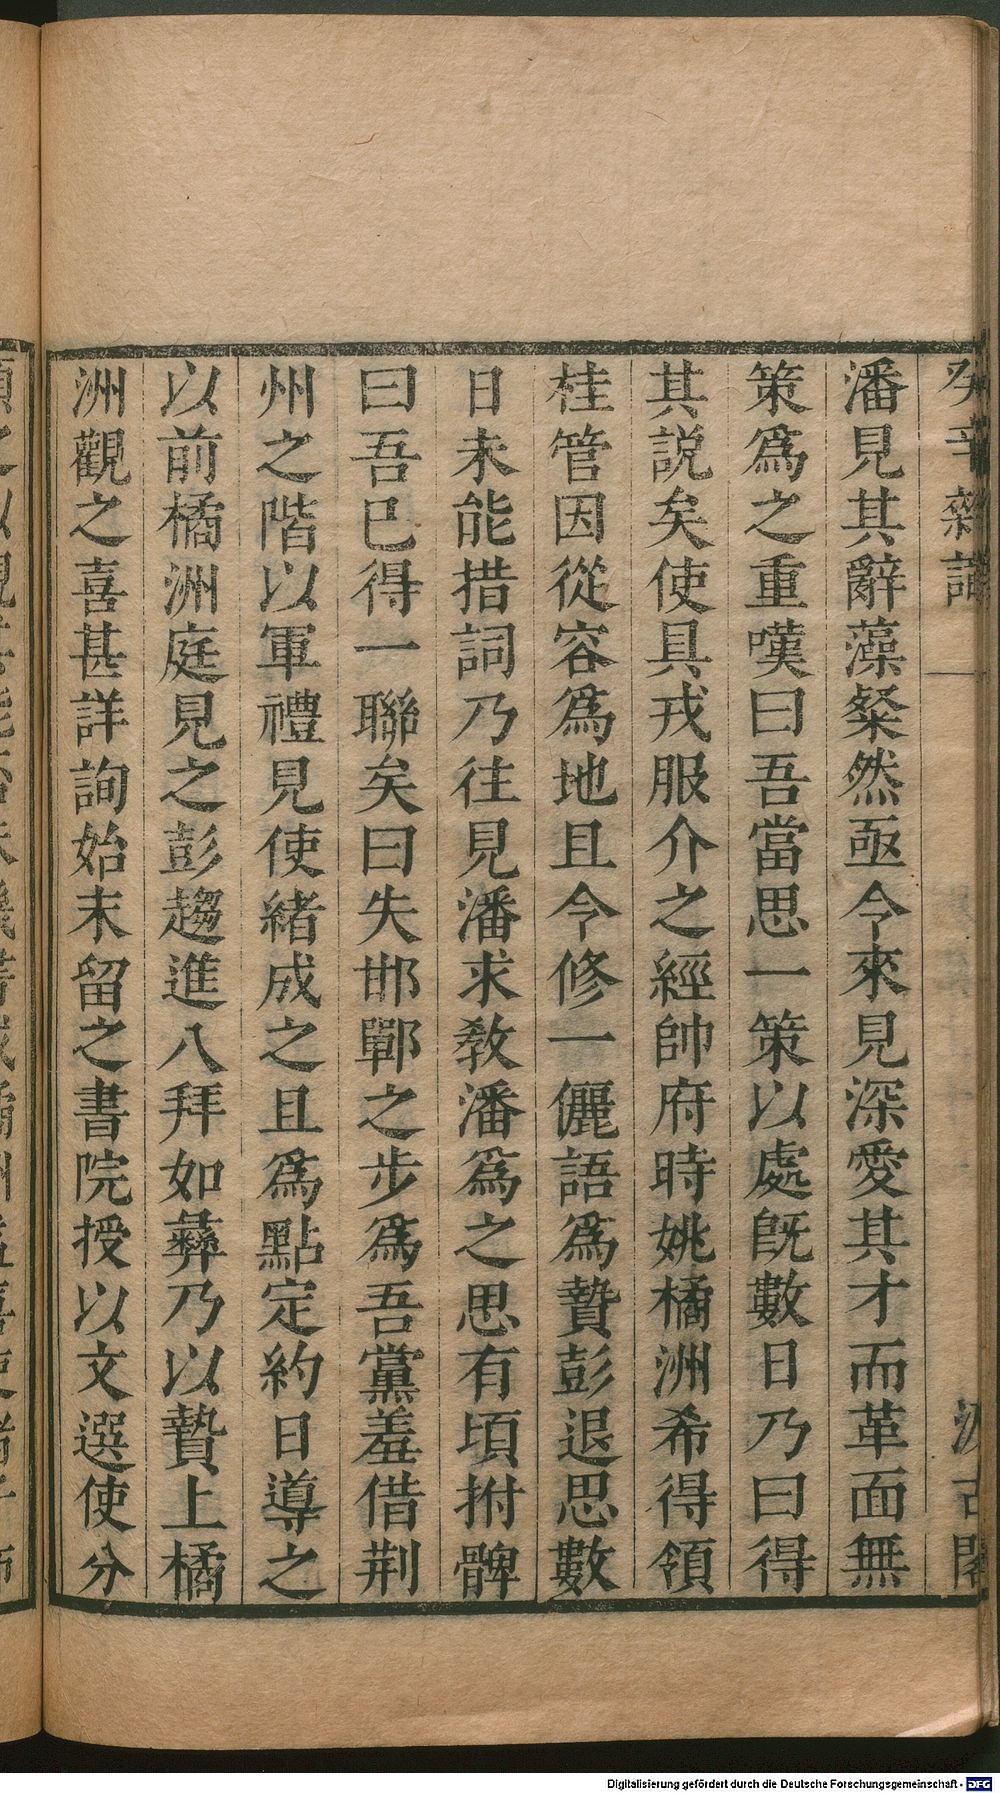 癸辛雜識
汲古閣
潘見其辭藻粲然亟令來見深愛其才而革面無
策爲之重嘆曰吾當思一策以處旣數日乃曰得
其説矣使具戎服介之經帥府時姚橘洲希得領
桂管因從容爲地且令修一儷語爲贄彭退思數
日未能措詞乃往見潘求教潘爲之思有頃拊髀
曰吾已得一聯矣曰失邯鄲之步爲吾黨羞借荆
州之階以軍禮見使緒成之且爲點定約日導之
以前橘洲庭見之彭趨進八拜如彝乃以贄上橘
洲觀之喜甚詳詢始末留之書院授以文選使分
Digitalisierung gefördert durch die Deutsche Forschungsgemeinschaft - DFG